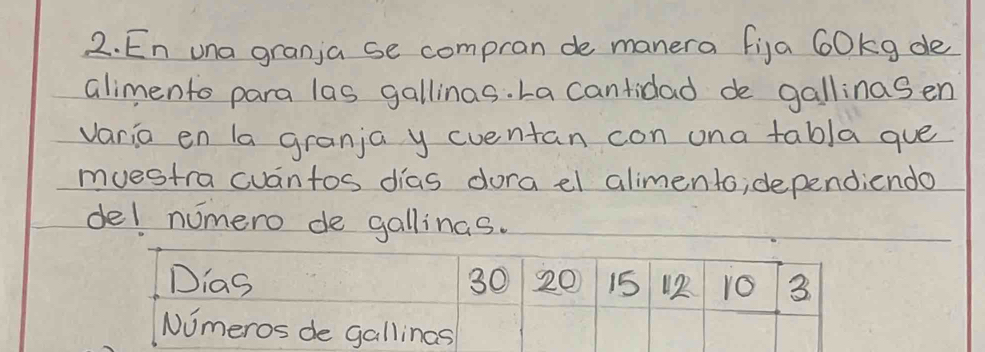 2. En una granja se compran de manera fija 60kg de
alimento para las gallinas. La cantidad de gallinas en
varía en la granja y cuentan con una tabla que
muestra cuántos días dura el alimento, dependiendo
del número de gallinas.
Días 30 20 15 12 10 3
Números de gallinas